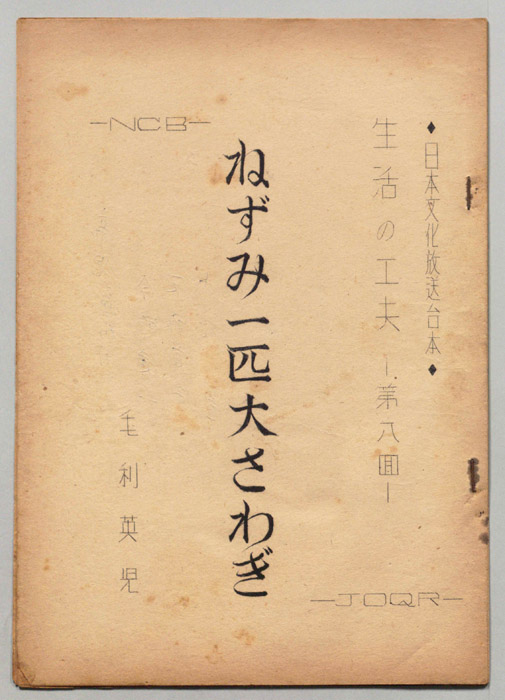 ◆日本文化放送台本◆
生活の工夫 ー第八囬ー
—JOQR—
ねずみ一匹大さわぎ
—NCB—
毛利英児